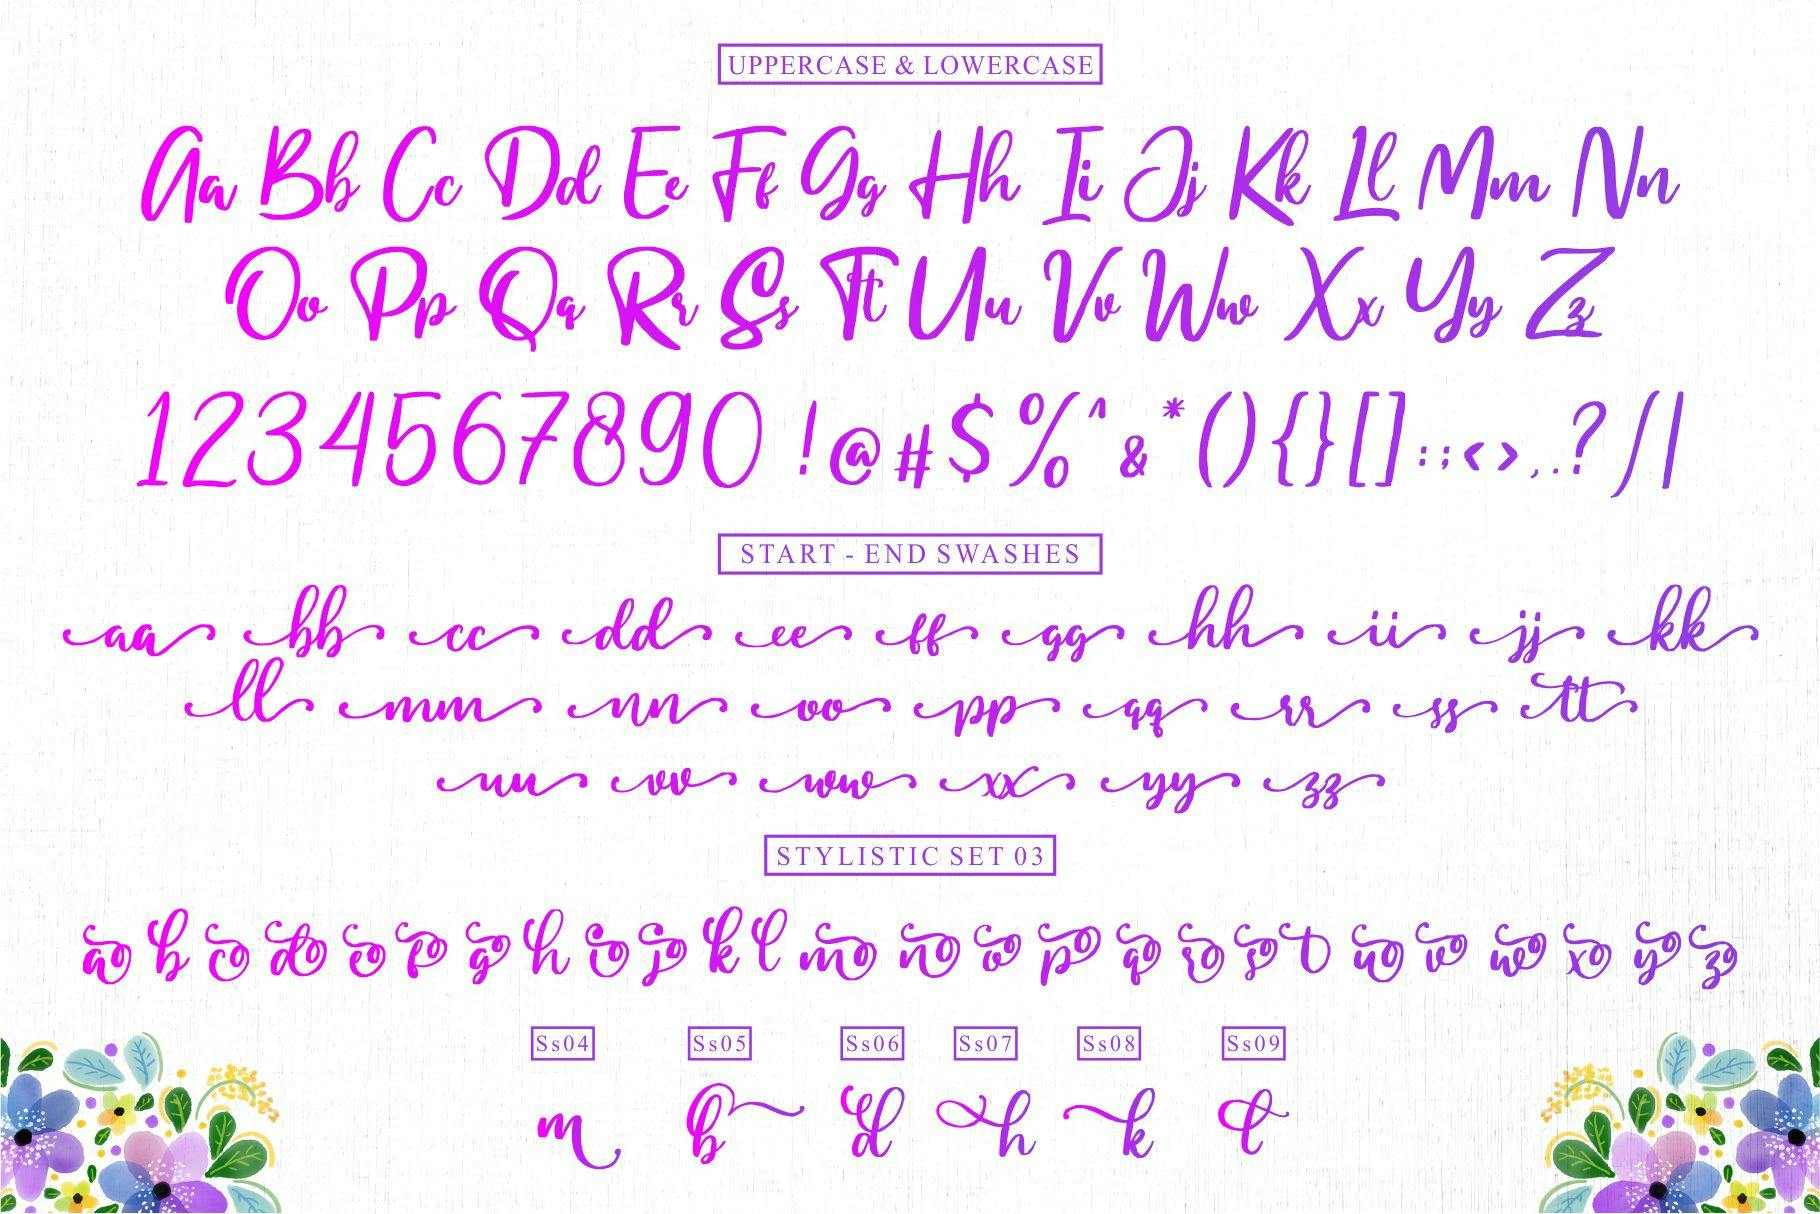 UPPERCASE & LOWERCASE
Aa Bb Cc Dd Ee Ff Gg Hh Ii Jj Kk Ll Mm Nn
Oo Pp Qq Rr Ss Tt Uu Vv Ww Xx Yy Zz
1234567890 !@#$%^&*(){}[]:;<>,.?/|
START - END SWASHES
aa bb cc dd ee ff gg hh ii jj kk
ll mm nn oo pp qq rr ss tt
uu vv ww xx yy zz
STYLISTIC SET 03
a b c d e f g h i j k l m n o p q r s t u v w x y z
Ss04 Ss05 Ss06 Ss07 Ss08 Ss09
m b d h k t